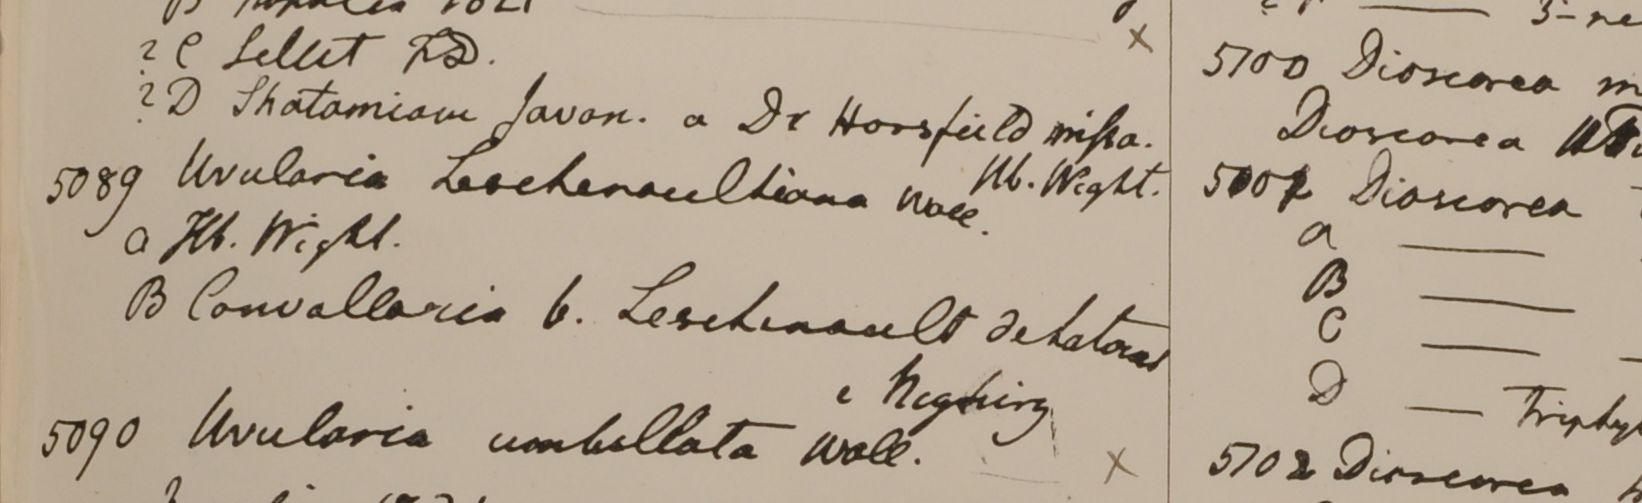 B Napalia 1821
? C Sellet F.D.
? D Shatamiam Javan. a Dr Horsfield missa.
5089 Uvularia Leschenaultiana Wall. Hb. Wight.
a Hb. Wight.
B Convallaria 6. Leschenault
e Neghiry
5090 Uvularia umbellata Wall.
5-ne
5700 Dioscorea
Dioscorea
Dioscorea
a
B
C
D Triphy
5702 Dioscorea